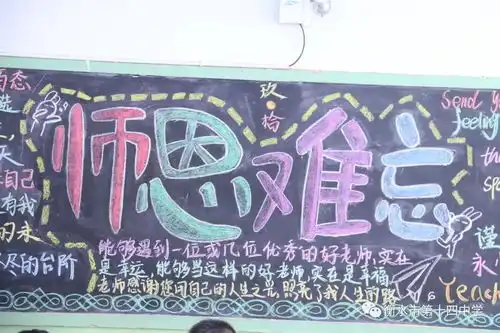 师恩难忘
玖
恰
能够遇到一位或几位优秀的好老师,实在
是幸运,能够当这样的好老师,实在是幸福,
老师感谢您用自己的人生之光,照亮了我人生的路
态
选
自己
有我
的未
尽的台阶
Send y
feeling
th
sp
谨
永
Yench
衡水市第十四中学